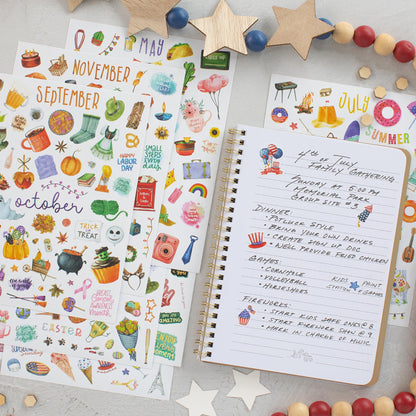 MAY
NOVEMBER
SEPTEMBER
october
HAPPY LABOR DAY
TRICK or TREAT
EASTER
JULY
SUMMER
4th of July
Family Gathering
Monday at 5:00 PM
Memorial Park
Group Site #3
Dinner:
• Potluck Style
• Bring your own drinks
• Create sign up doc
• Well provide fried chicken
Games:
• Cornhole
• Volleyball
• Horseshoes
Kids Paint
Station & Games
Fireworks:
• Start kids safe ones @ 8
• Start firework show @ 9
• Mark in charge of music